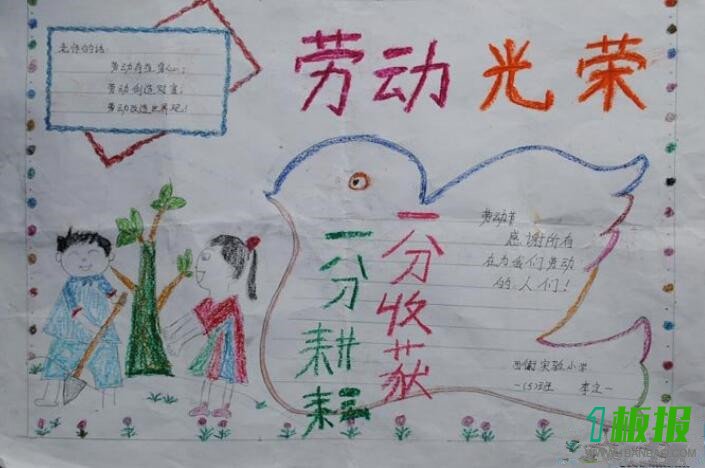 劳动光荣
老师的话:
劳动存在
劳动创造财富;
劳动改造世界观!
一分耕耘
一分收获
劳动节
感谢所有
在为我们劳动
的人们!
实验小学
一(5)班 李
1板报
WWW.1BANBAO.COM